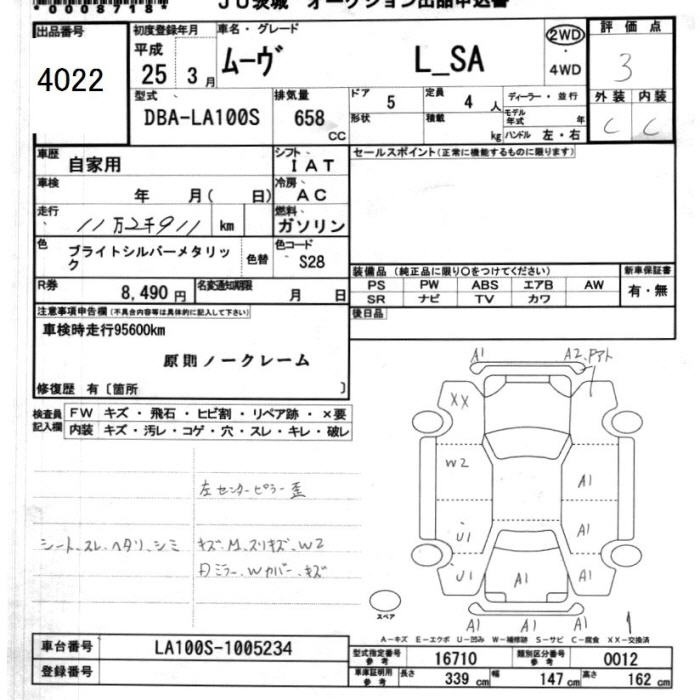 00008718
JU茨城 オークション出品申込書
出品番号
4022
初度登録年月
平成
25 3月
車名・グレード
ムーヴ L_SA
2WD
・
4WD
評価点
3
外装 内装
C C
型式
DBA-LA100S
排気量
658
CC
ドア 5
定員 4 人
形状
積載 kg
ディーラー・並行
モデル年式 年
ハンドル 左・右
車歴
自家用
シフト
IAT
車検
年 月( 日)
冷房
AC
走行
11万2千911 km
燃料
ガソリン
色
ブライトシルバーメタリッ
ク
色替
色コード
S28
R券
8,490円
名変通知期限
月 日
セールスポイント(正常に機能するものに限ります)
装備品 (純正品に限り○をつけてください)
PS PW ABS エアB AW
SR ナビ TV カワ
新車保証書
有・無
後日品
注意事項申告欄(不具合内容等は具体的に記入して下さい)
車検時走行95600km
原則ノークレーム
修復歴 有〔箇所 〕
検査員
記入欄
FW キズ・飛石・ヒビ割・リペア跡・×要
内装 キズ・汚レ・コゲ・穴・スレ・キレ・破レ
左センターピラー歪
シート、スレ、ヘタリ、シミ
キズ、M、スリキズ、W2
ミラー、Wカバー、キズ
A1 A2、Pアト
XX
W2
A1
U1
A1
U1
A1
A1
A1 A1 A1
スペア
A−キズ E−エクボ U−凹み W−補修跡 S−サビ C−腐食 XX−交換済
車台番号
LA100S-1005234
登録番号
型式指定番号
参考
16710
類別区分番号
参考
0012
車庫証明用
参考
長さ 339 cm
幅 147 cm
高さ 162 cm